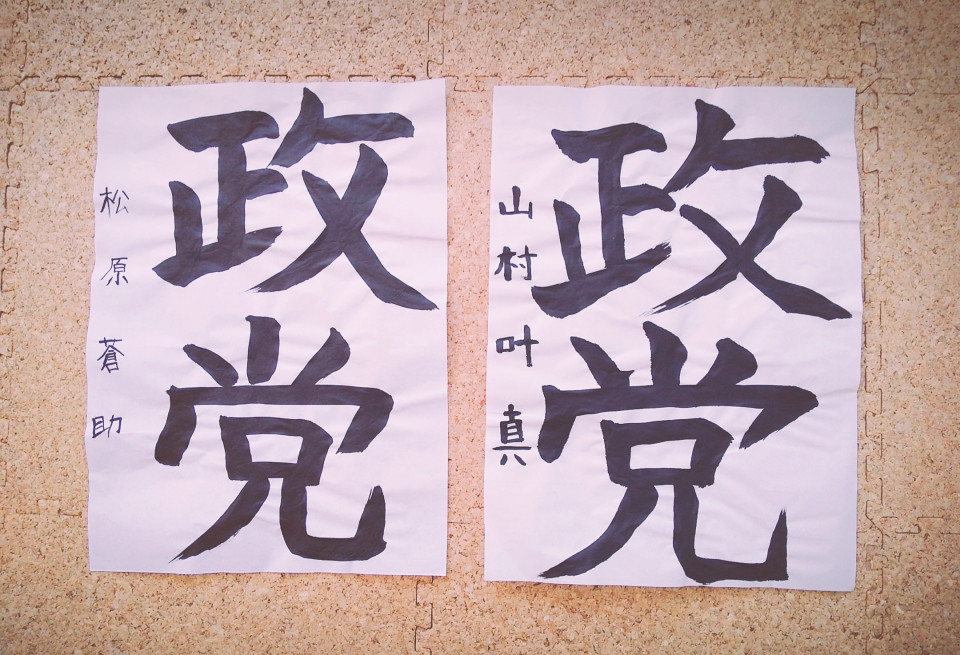 政党
松原蒼助
政党
山村叶真